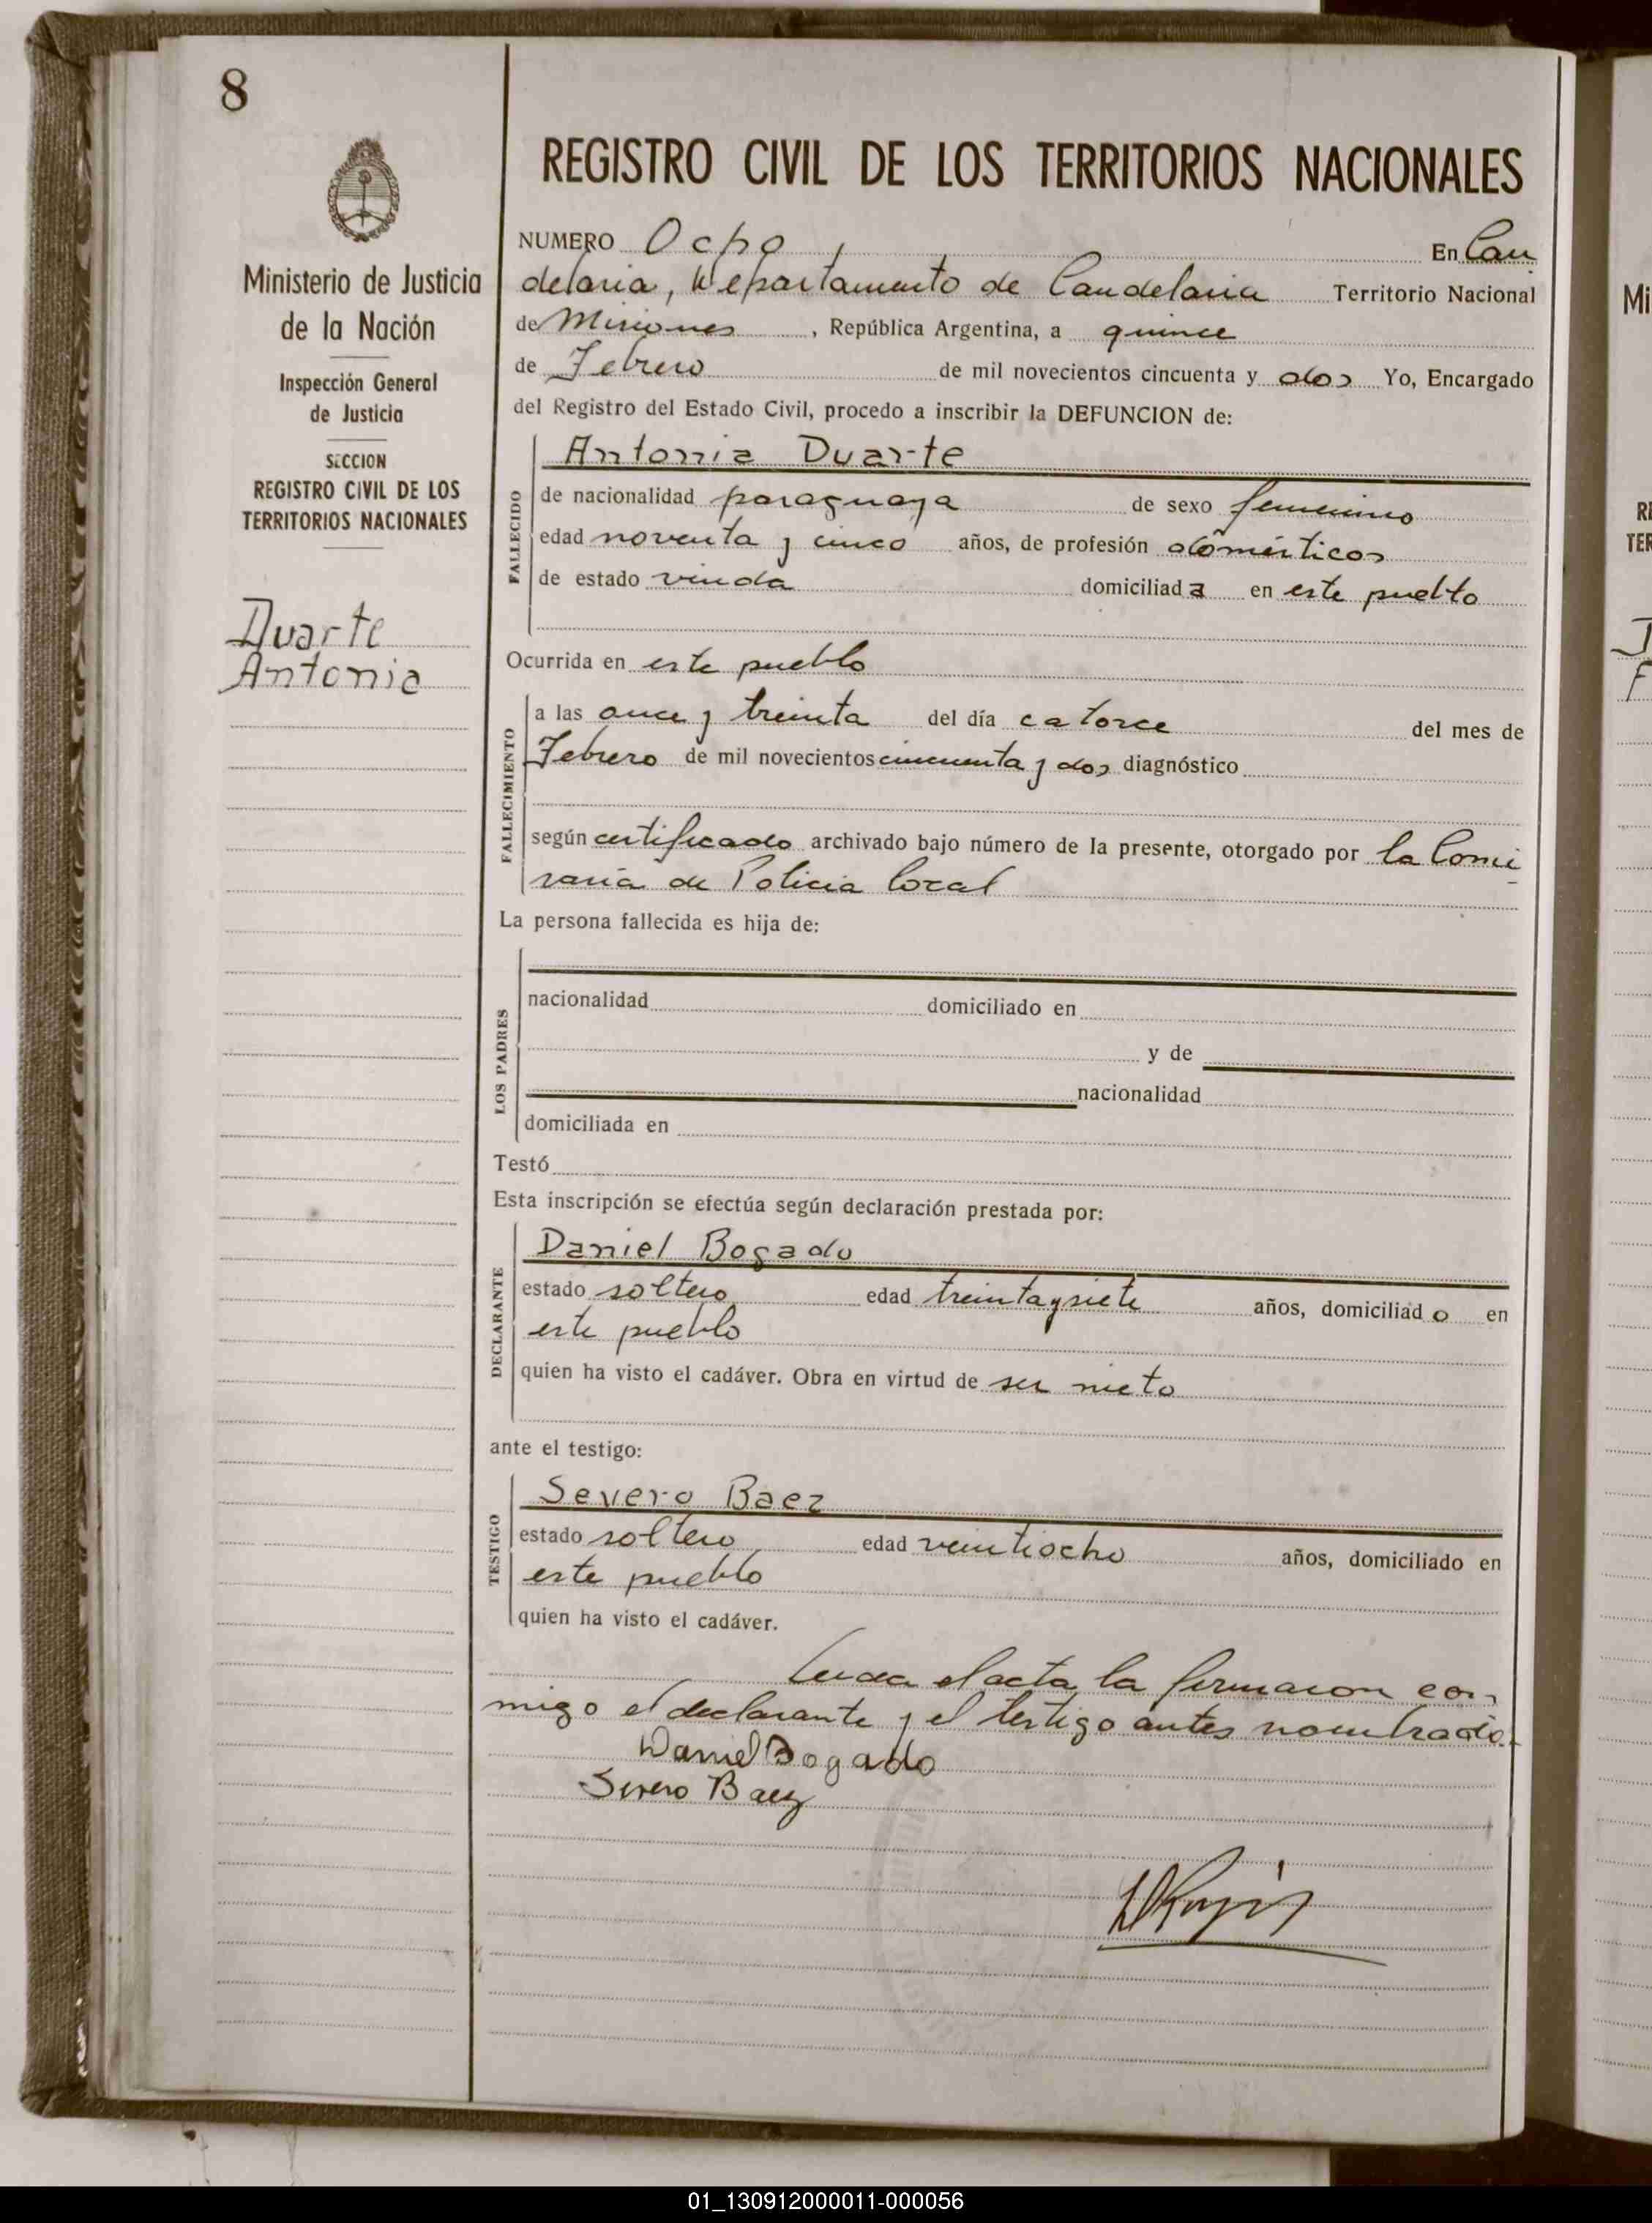 8
Ministerio de Justicia
de la Nación
Inspección General
de Justicia
SECCION
REGISTRO CIVIL DE LOS
TERRITORIOS NACIONALES
Duarte
Antonia
REGISTRO CIVIL DE LOS TERRITORIOS NACIONALES
NUMERO Ocho, En Can
delaria, Departamento de Candelaria Territorio Nacional
de Misiones, República Argentina, a quince
de Febrero de mil novecientos cincuenta y dos Yo, Encargado
del Registro del Estado Civil, procedo a inscribir la DEFUNCION de:
FALLECIDO
Antonia Duarte
de nacionalidad paraguaya de sexo femenino
edad noventa y cinco años, de profesión domésticos
de estado viuda domiciliada en este pueblo
Ocurrida en este pueblo
FALLECIMIENTO
a las once y treinta del día catorce del mes de
Febrero de mil novecientos cincuenta y dos diagnóstico
según certificado archivado bajo número de la presente, otorgado por la Comi
saria de Policia local
La persona fallecida es hija de:
LOS PADRES
nacionalidad domiciliado en
y de
nacionalidad
domiciliada en
Testó
Esta inscripción se efectúa según declaración prestada por:
DECLARANTE
Daniel Bogado
estado soltero edad treinta y siete años, domiciliado en
este pueblo
quien ha visto el cadáver. Obra en virtud de ser nieto
ante el testigo:
TESTIGO
Severo Baez
estado soltero edad veintiocho años, domiciliado en
este pueblo
quien ha visto el cadáver.
Leida el acta, la firmaron con
migo el declarante y el testigo antes nombrado.
Daniel Bogado
Severo Baez
Mi
01_130912000011-000056